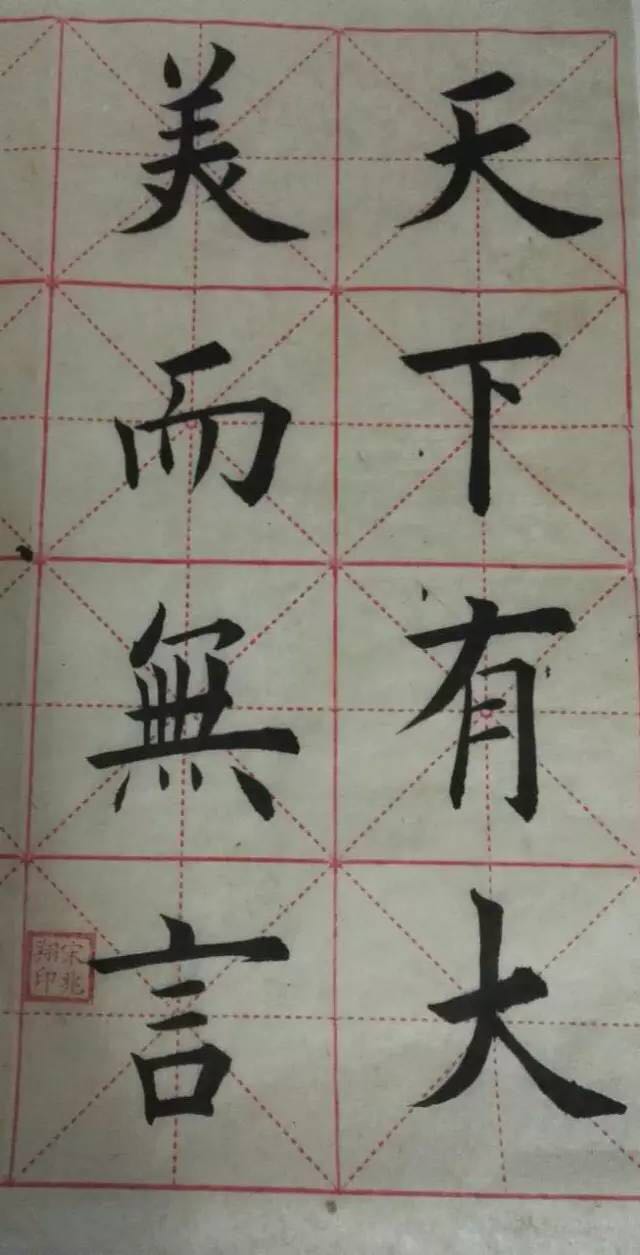 天下有大
美而無言
宋兆翔印